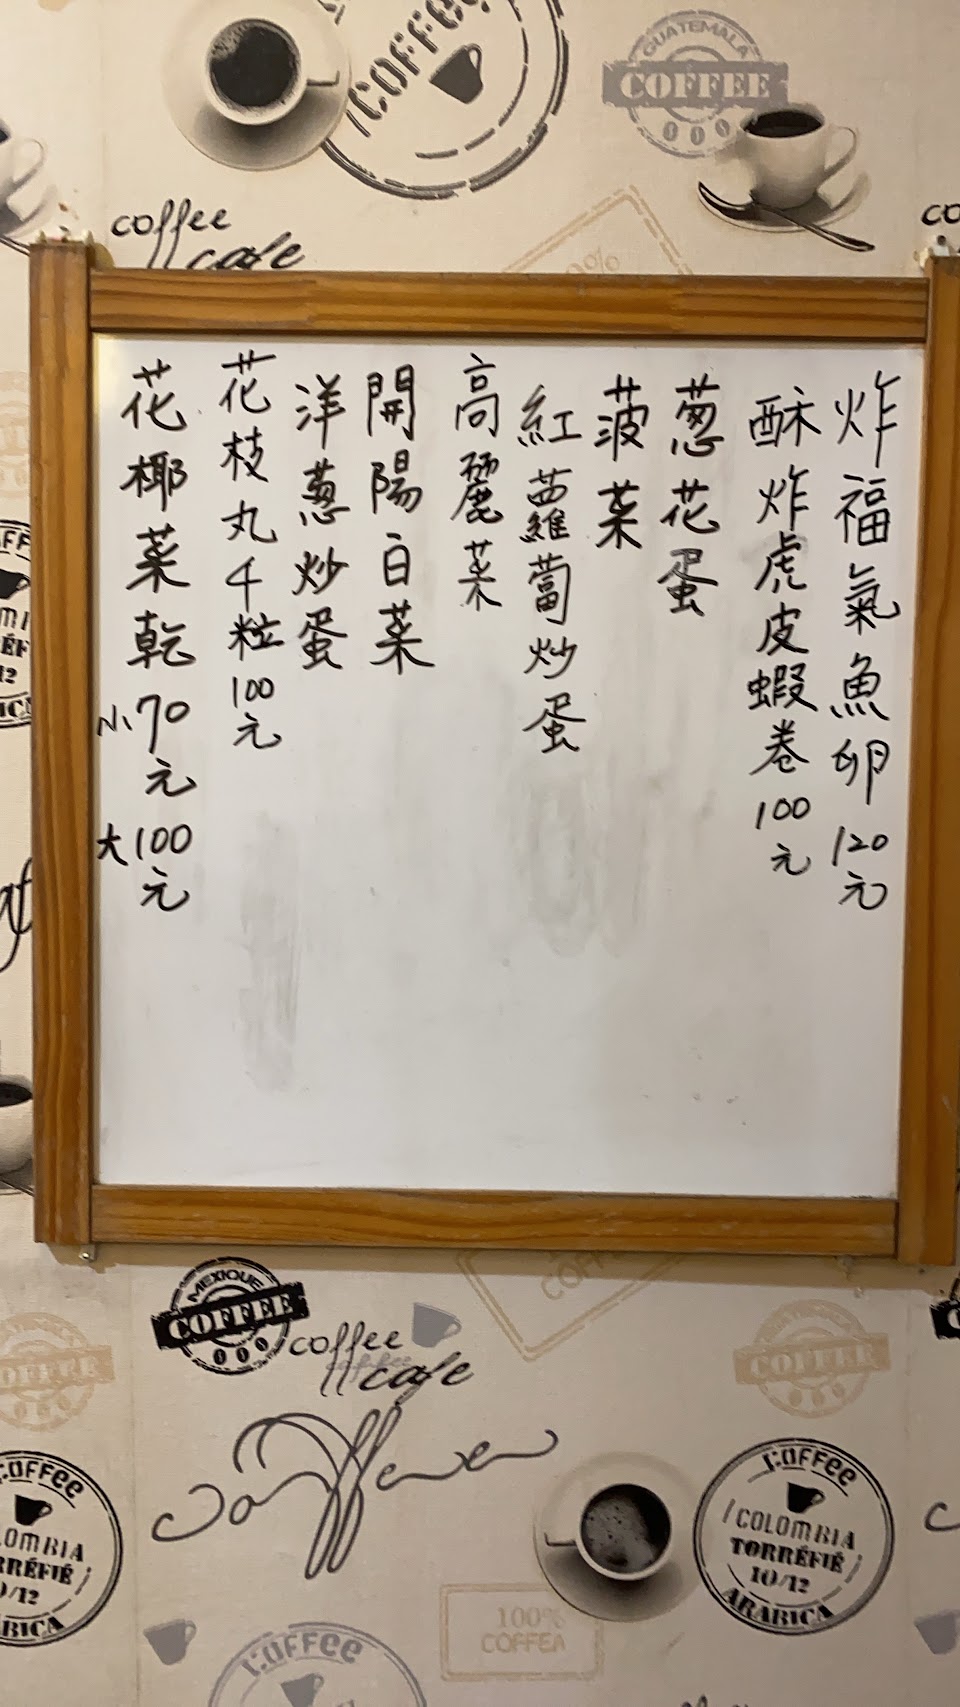 COFFEE
GUATEMALA
COFFEE
coffee
cafe
炸福氣魚卵 120元
酥炸虎皮蝦卷 100元
蔥花蛋
菠菜
紅蘿蔔炒蛋
高麗菜
開陽白菜
洋蔥炒蛋
花枝丸 4粒 100元
花椰菜乾 小70元
大100元
MEXIQUE
COFFEE
coffee
cafe
COFFEE
coffee
COLOMBIA
TORRÉFIÉ
10/12
ARABICA
100%
COFFEA
coffee